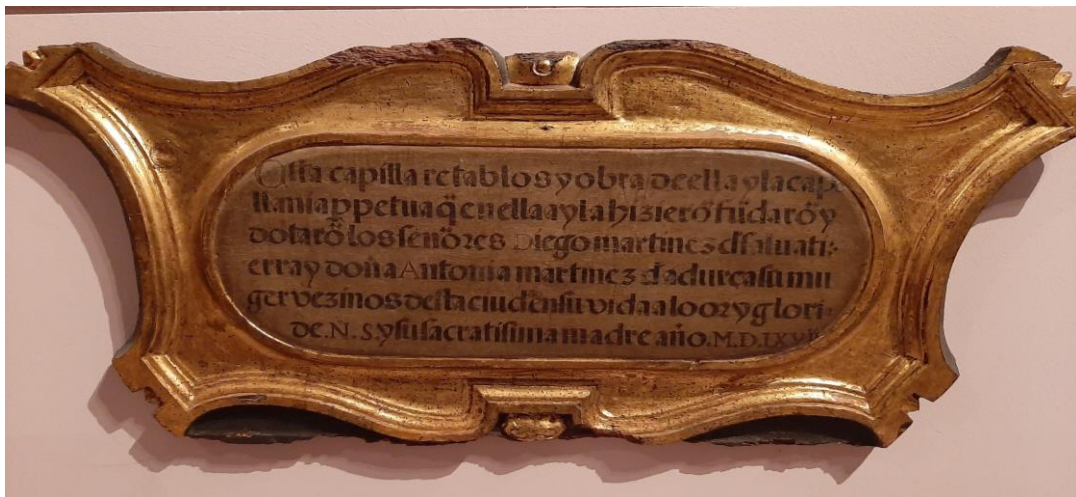 Esta capilla retablos y obra de ella y la cape
llania ppetua q̃ en ella ay la hizierõ fũdarõ y
dotarõ los señores Diego martinez d̃ saluati:
erra y doña Antonia martinez d̃ adurça su mu
ger vezinos desta ciud en su vida a loor y glori
de. N. S. y su sacratisima madre año. M. D. LXVII